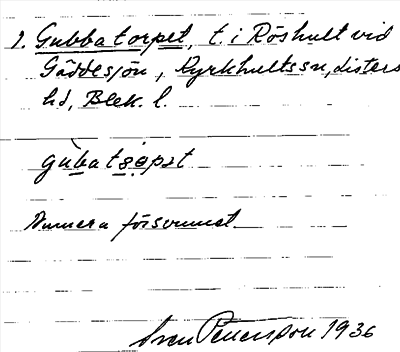 1. Gubbatorpet, t. i Röshult vid
Gäddesjön, Kyrkhultssn, Listers
hd, Blek. l.
Numera försvunnet
Sven Petersson 1936